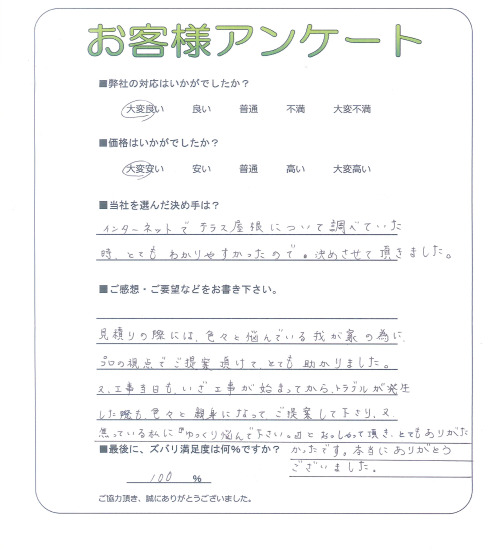 お客様アンケート
■弊社の対応はいかがでしたか？
大変良い 良い 普通 不満 大変不満
■価格はいかがでしたか？
大変安い 安い 普通 高い 大変高い
■当社を選んだ決め手は？
インターネットで テラス屋根について調べていた
時、とても わかりやすかったので。決めさせて頂きました。
■ご感想・ご要望などをお書き下さい。
見積りの際には、色々と悩んでいる我が家の為に、
プロの視点でご提案頂けて、とても助かりました。
又、工事当日も、いざ工事が始まってから、トラブルが発生
した際も、色々と親身になって、ご提案して下さり、又、
焦っている私に『ゆっくり悩んで下さい。』とおっしゃって頂き、とてもありがた
かったです。本当にありがとう
ございました。
■最後に、ズバリ満足度は何%ですか？
100 %
ご協力頂き、誠にありがとうございました。